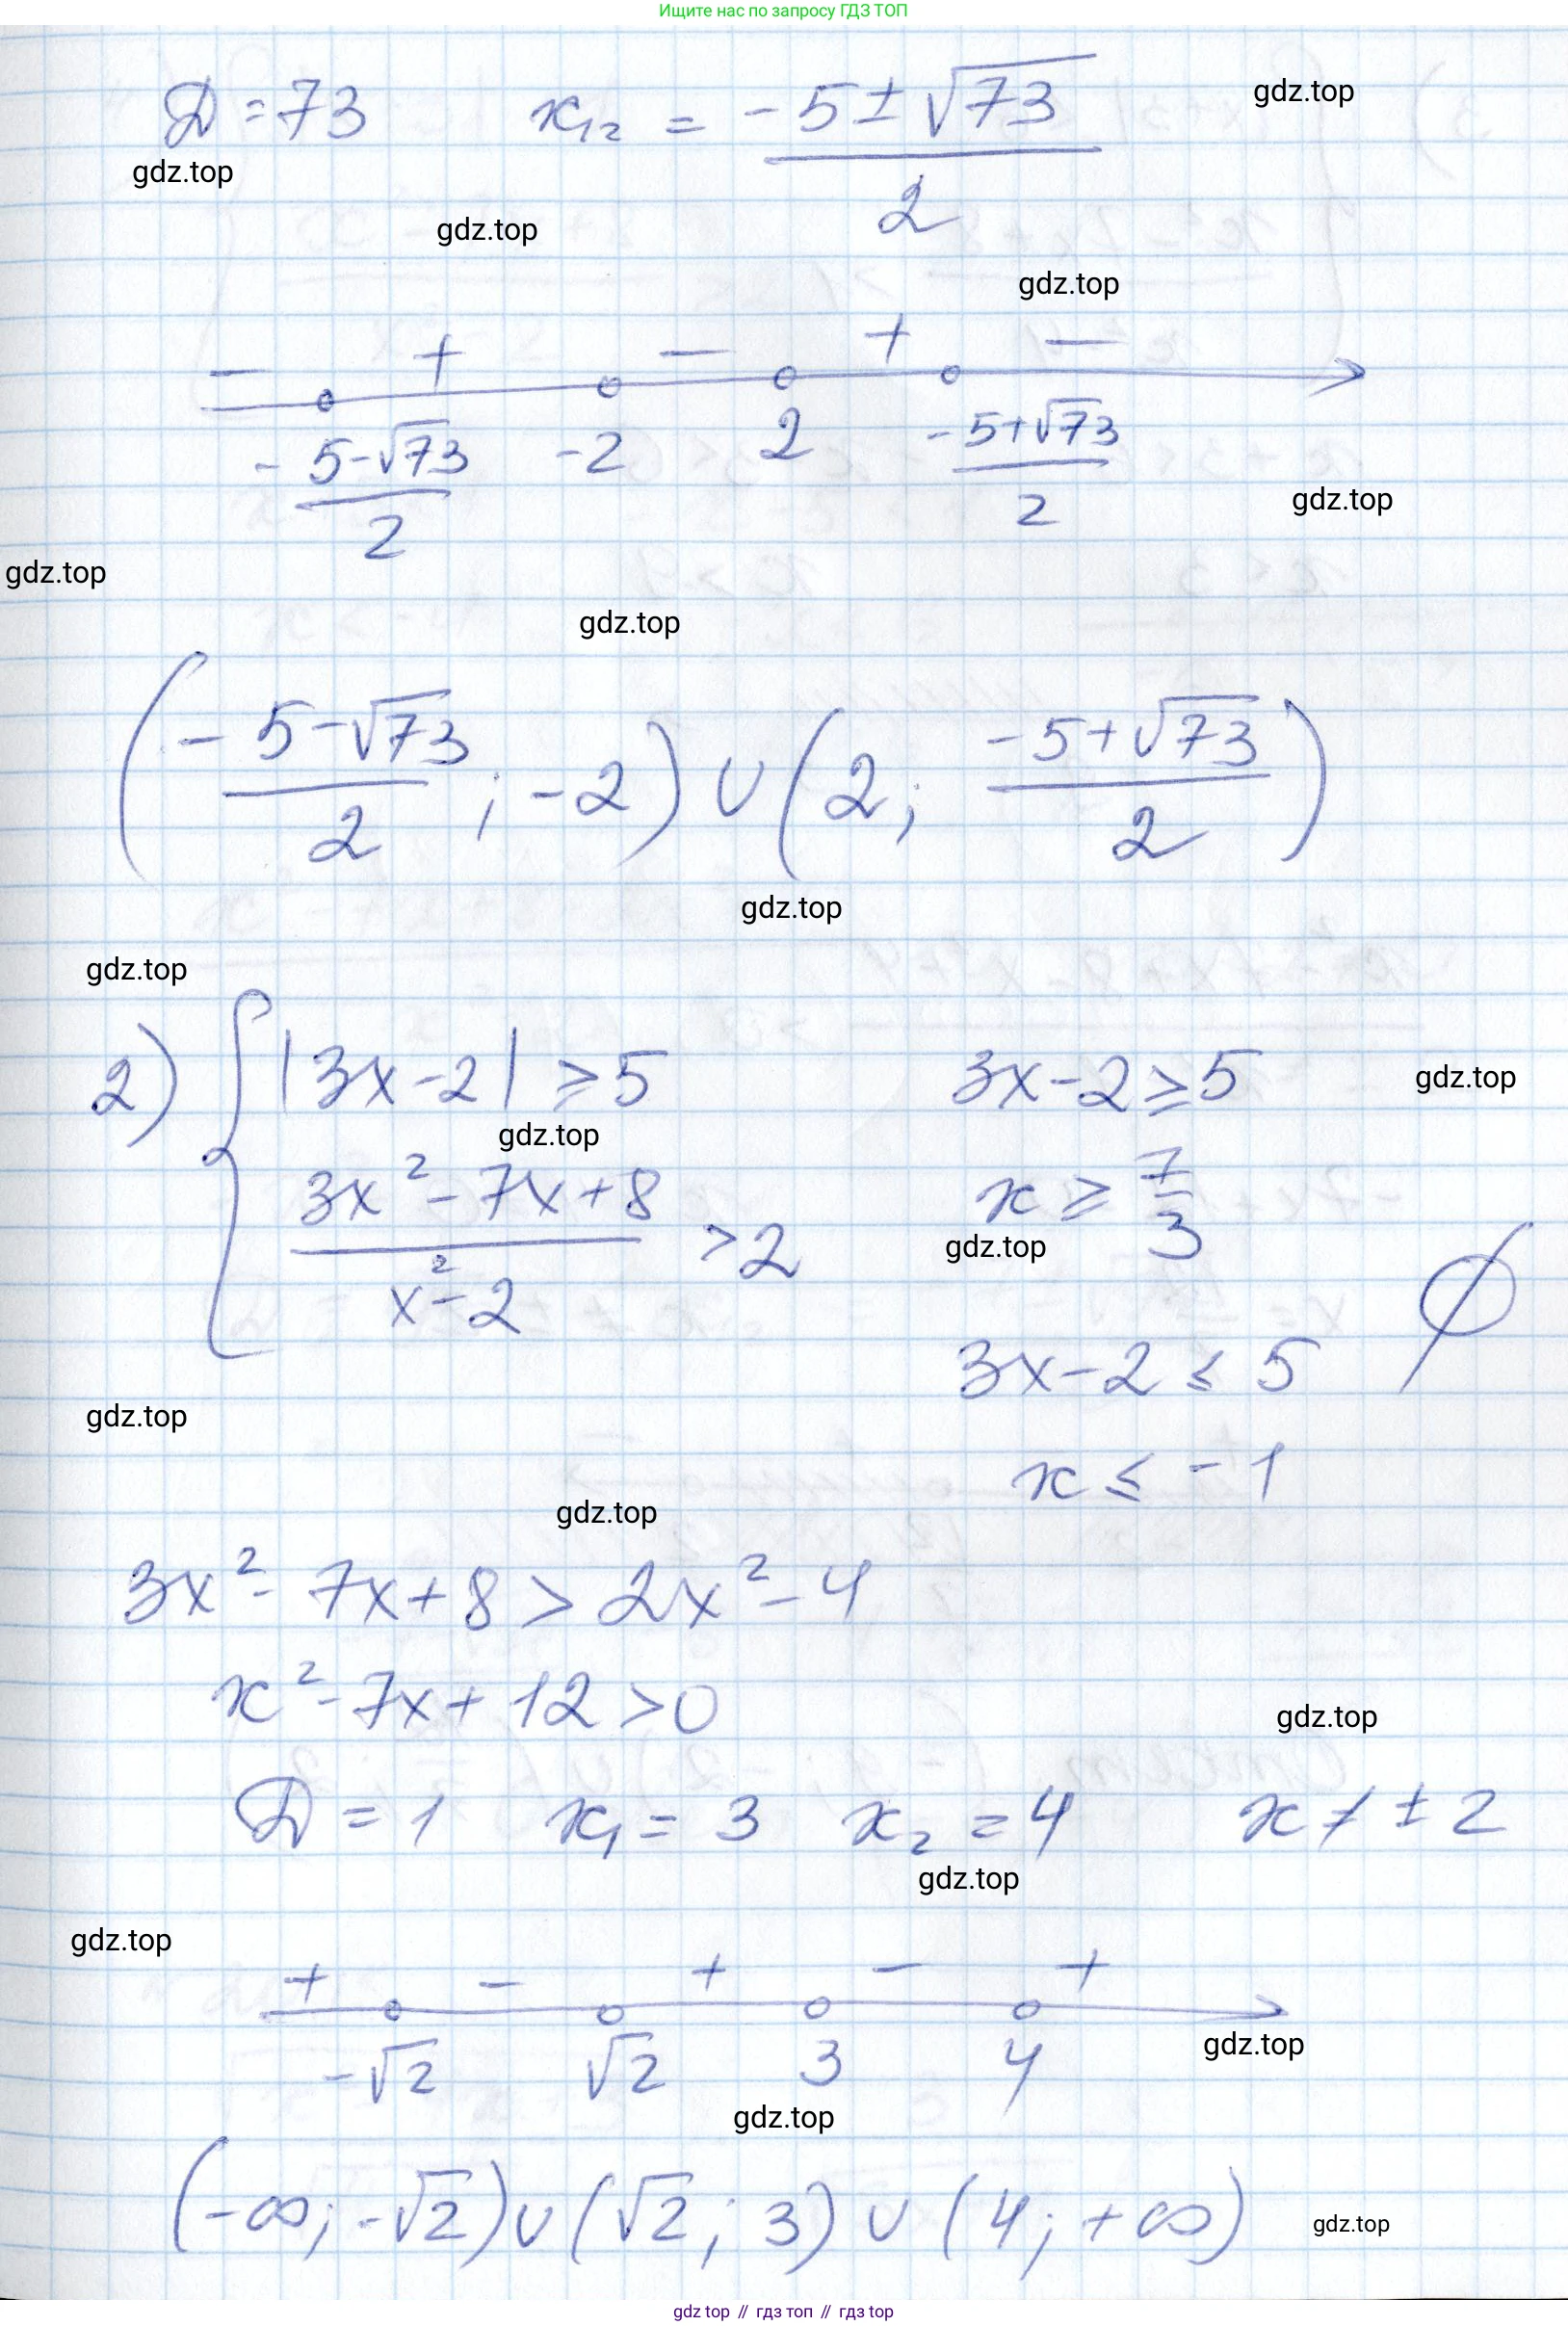 Ищите нас по запросу ГДЗ ТОП
D = 73    x₁₂ = (-5 ± √73)/2
gdz.top
gdz.top
gdz.top
gdz.top
- + - + -
(-5-√73)/2    -2    2    (-5+√73)/2
gdz.top
gdz.top
gdz.top
((-5-√73)/2 ; -2) ∪ (2 ; (-5+√73)/2)
gdz.top
gdz.top
2) { |3x-2| ⩾ 5    3x-2 ⩾ 5
gdz.top
gdz.top
(3x²-7x+8)/(x²-2) > 2    x ⩾ 7/3
gdz.top
∅
3x-2 ⩽ 5
gdz.top
x ⩽ -1
gdz.top
3x² - 7x + 8 > 2x² - 4
x² - 7x + 12 > 0
gdz.top
D = 1    x₁ = 3    x₂ = 4    x ≠ ± 2
gdz.top
gdz.top
+ - + - +
-√2    √2    3    4
gdz.top
gdz.top
(-∞; -√2) ∪ (√2; 3) ∪ (4; +∞)
gdz.top
gdz top // гдз топ // гдз top